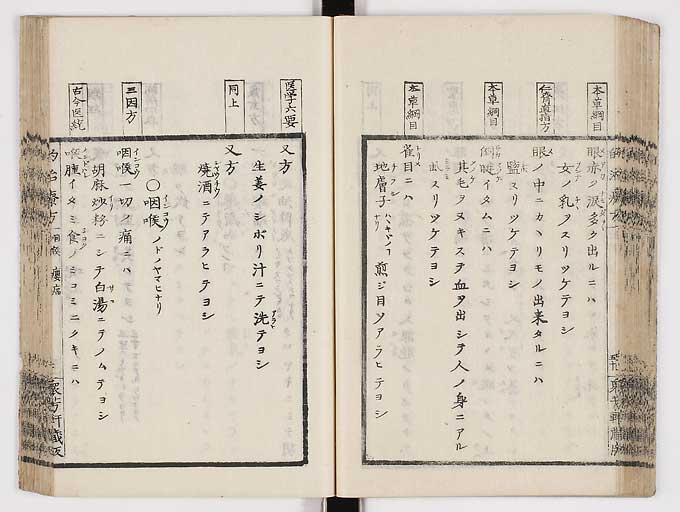 本草綱目
眼赤ク涙多ク出ルニハ
女ノ乳ヲスリツケテヨシ
仁斎直指方
眼ノ中ニカヽリモノ出来タルニハ
塩スリツケテヨシ
本草綱目
倒睫イタムニハ
其毛ヲヌキステ血ヲ出シテ人ノ身ニアル
虱スリツケテヨシ
本草綱目
雀目ニハ
地膚子 煎ジ目ヲアラヒテヨシ
医学六要
又方
生姜ノシボリ汁ニテ洗テヨシ
同上
又方
焼酒ニテアラヒテヨシ
〇咽喉 ノドノヤマヒナリ
三因方
咽喉一切ノ痛ニハ
胡麻炒粉ニシテ白湯ニテノムテヨシ
古今医統
喉腫イタミ食ノミコミニクキニハ